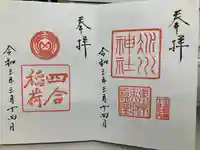 奉拝
氷川
神社
令和三年三月十四日
奉拝
四合
稲荷
令和三年三月十四日